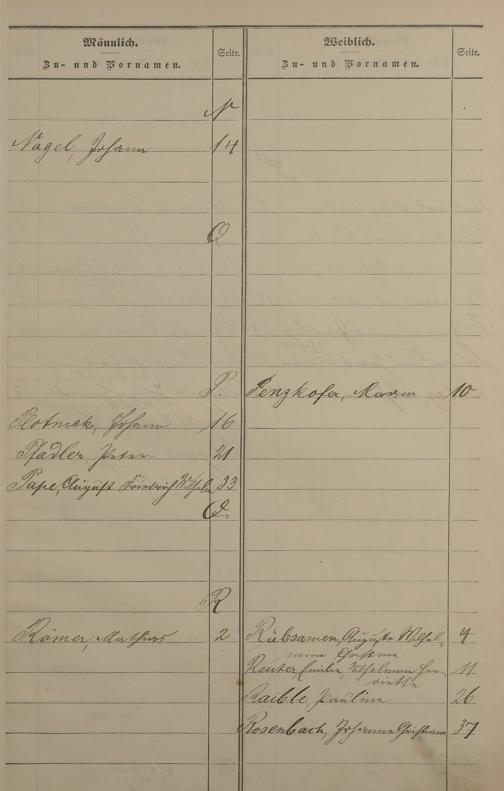 Männlich. Seite. Weiblich. Seite.
Zu- und Vornamen. Zu- und Vornamen.
N
Nagel, Johann 14
O
P. Penzkofer, Maria 10
Plotnick, Johann 16
Pfadler, Peter 21
Pape, August Friedrich Wilhelm 33
Q
R
Römer, Mathias 2 Rübsamen, Auguste Wilhel- 4
mine Christine
Reuter, Emilie, Wilhelmine Hen- 11
riette
Raible, Pauline 26
Rosenbach, Johanna Christiane 37